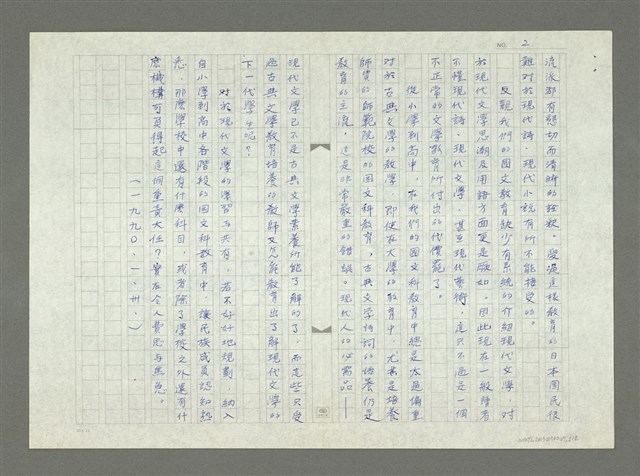 NO. 2
流派都有懇切而清晰的詮釋。受過這樣教育的日本國民很
難對於現代詩、現代小說有所不能接受的。
反觀我們的國文教育缺少有系統的介紹現代文學,對
於現代文學思潮及用語方面更是厥如。因此現在一般讀者
不懂現代詩、現代文學,甚至現代藝術,這只不過是一個
不正常的文學教育所付出的代價罷了。
從小學到高中,在我們的國文科教育中總是太過偏重
對於古典文學的教學,即使在大學的教育中,尤其是培養
師資的師範院校的國文科教育,古典文學詩詞的培養仍是
教育的主流,這是非常嚴重的錯誤。現代人的作品——
現代文學已不是古典文學素養所能了解的了,而這些只受
過古典文學教育培養的教師又怎能教育出了解現代文學的
下一代學生呢?
對於現代文學的學習與共有,若不好好地規劃,納入
自小學到高中各階段的國文科教育中,讓民族成員認知熟
悉,那麼學校中還有什麼科目,或者除了學校之外還有什
麼機構可負得起這個重責大任?實在令人費思與焦慮。
(一九九〇.一.卅.)